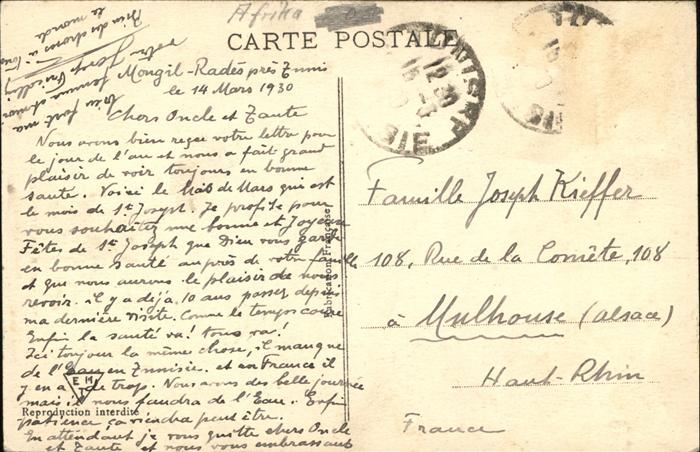 Afrika
CARTE POSTALE
Mongil-Radès près Tunis
le 14 Mars 1930
Chers Oncle et Tante
Nous avons bien reçue votre lettre pour
le jour de l'an et nous a fait grand
plaisir de voir toujours en bonne
santé. Voici le Mois de Mars qui est
le mois de St Joseph. Je profite pour
vous souhaitez une bonne et Joyeuse
Fêtes de St Joseph que Dieu vous garde
en bonne santé auprès de votre famille
et que nous aurons le plaisir de nous
revoir. il y a déjà 10 ans passez depuis
ma dernière visite. Comme le temps coure
Enfin la santé va! tous va!
Ici toujour la même chose, il manque
de l'Eau en Tunisie. et en France il
y en a de trop. Nous avons des belle journée
mais il nous faudra de l'Eau. Enfin
patience ça viendra peut être.
En attendant je vous quitte chers Oncle
et Tante et nous vous embrassant
bien des choses à tous
le monde
votre
Reproduction interdite
Fabrication Française
Famille Joseph Kieffer
108, Rue de la Comète, 108
à Mulhouse (Alsace)
Haut-Rhin
France